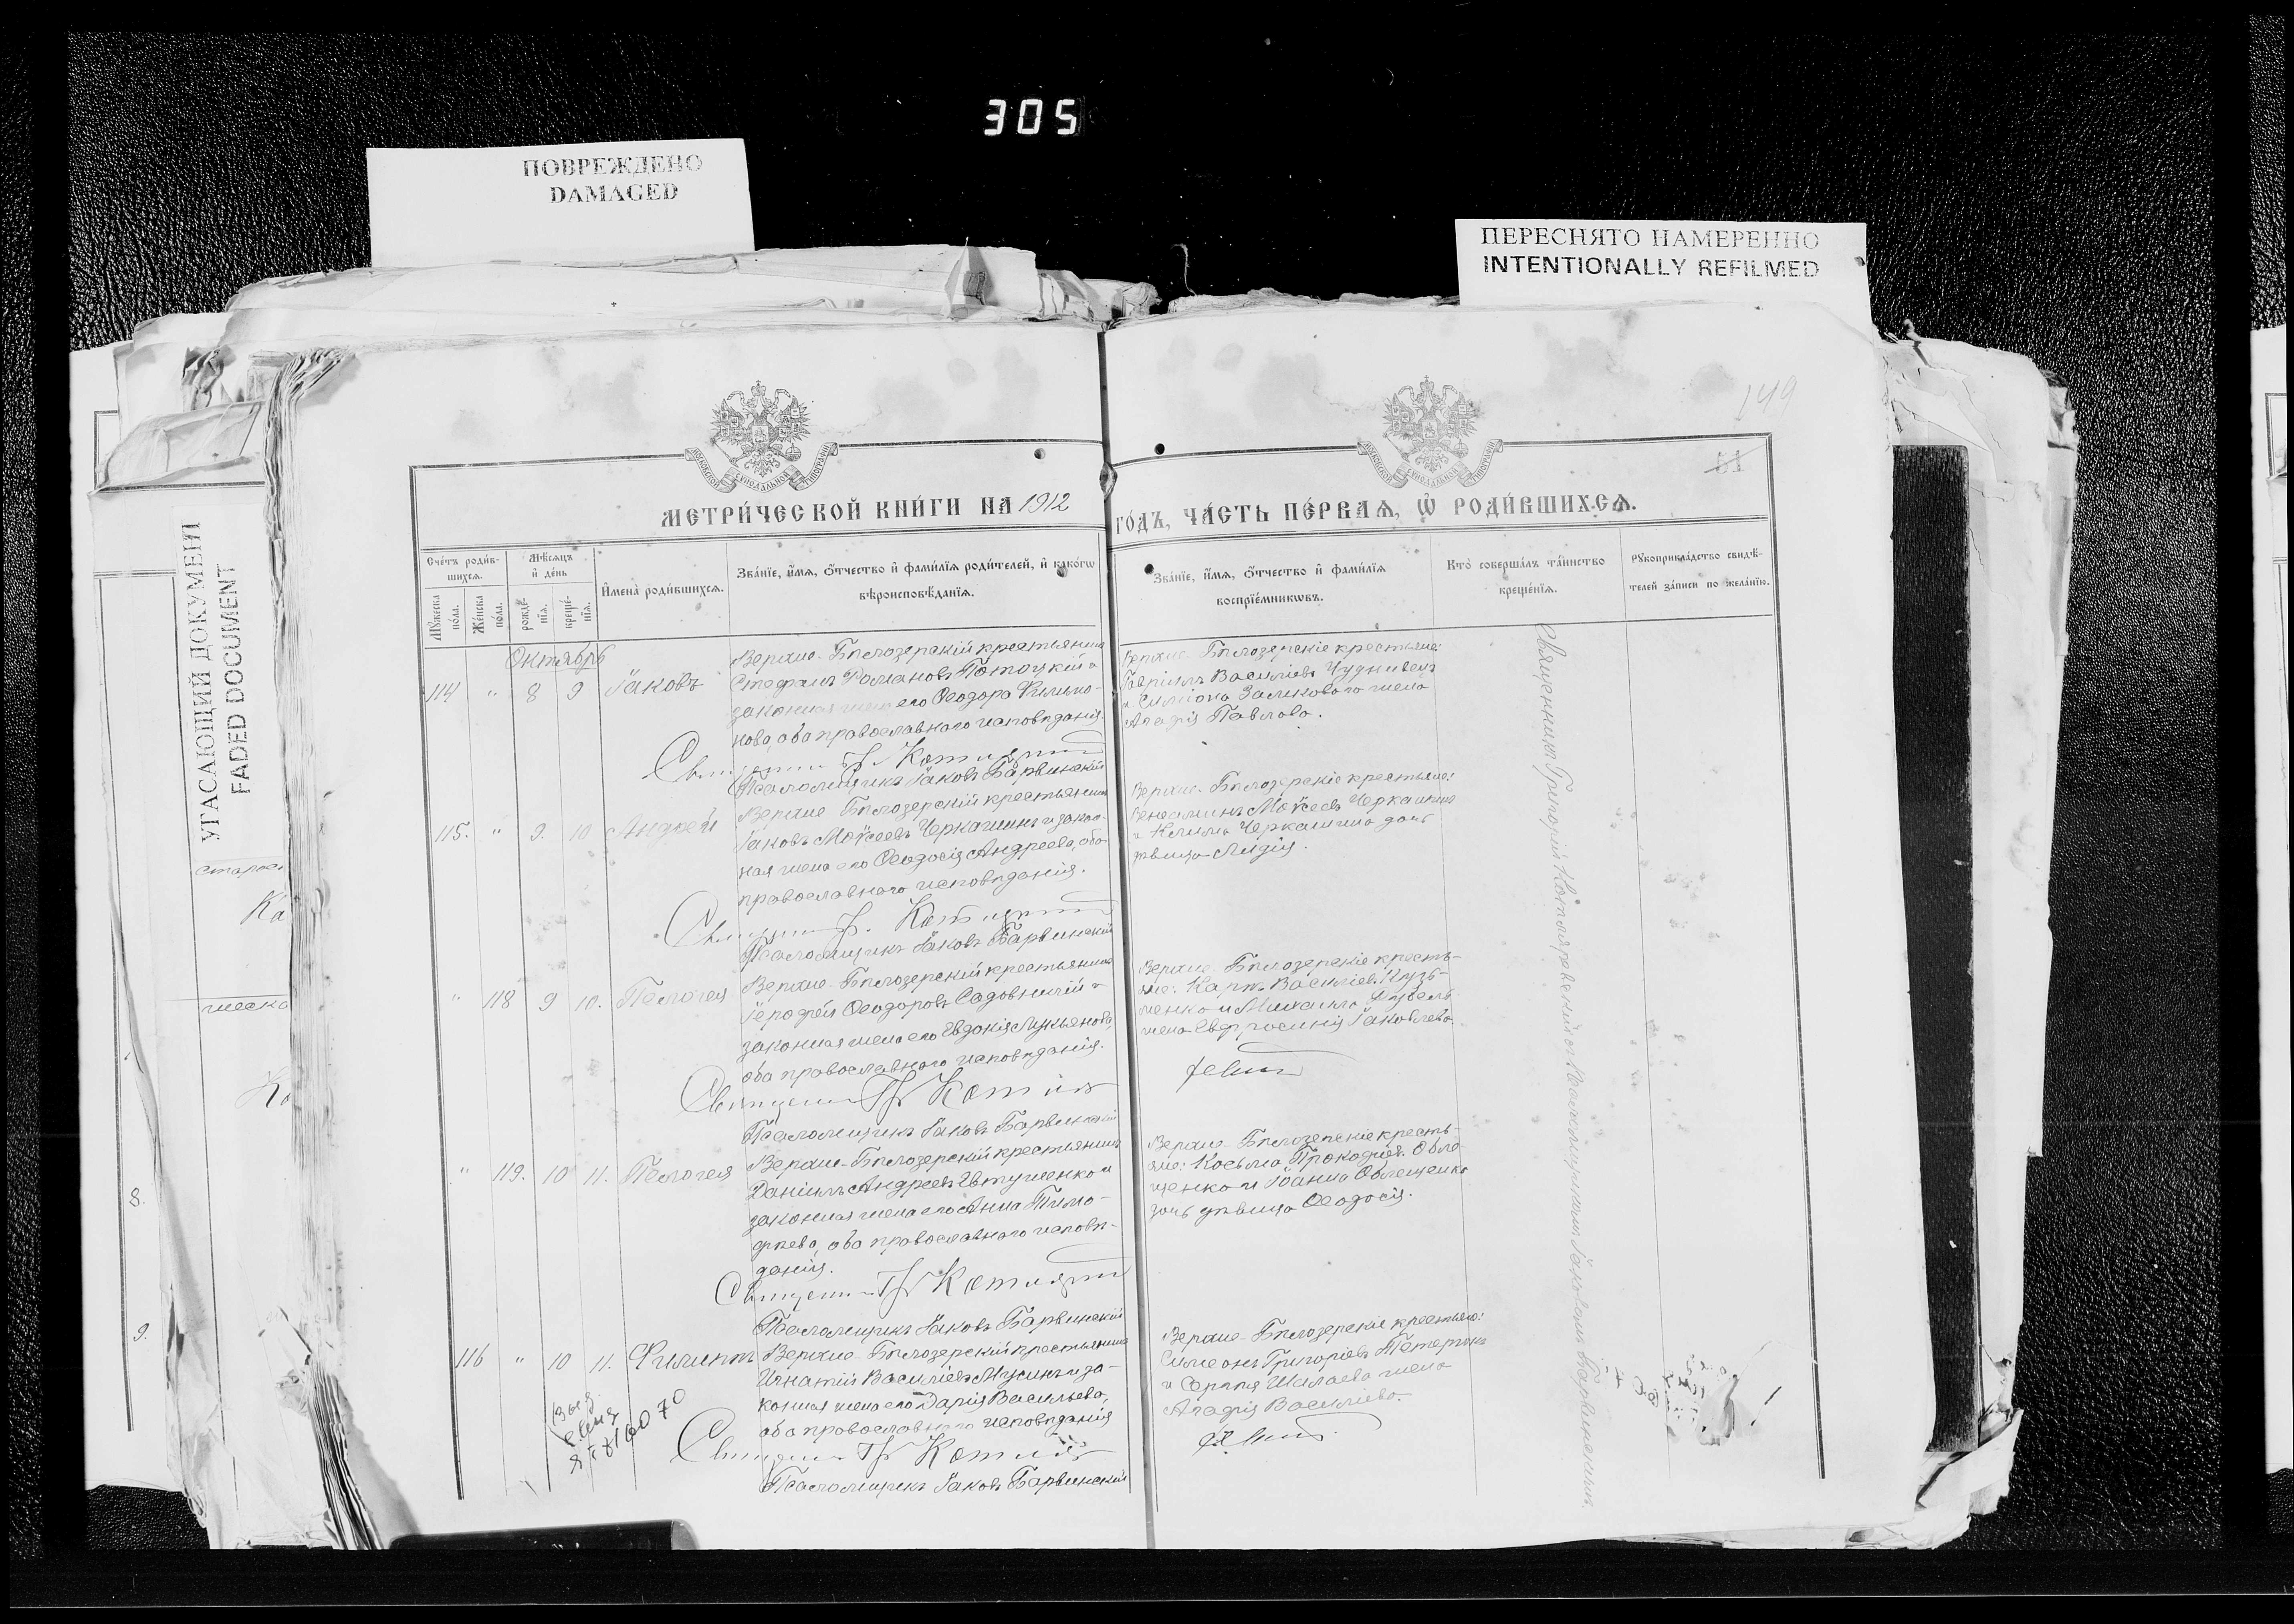 305
ПОВРЕЖДЕНО
DAMAGED
ПЕРЕСНЯТО НАМЕРЕННО
INTENTIONALLY REFILMED
УГАСАЮЩИЙ ДОКУМЕНТ
FADED DOCUMENT
149
51
МЕТРИ́ЧЕСКОЙ КНИ́ГИ НА 1912
ГО́ДЪ, ЧА́СТЬ ПЕ́РВАѦ, Ѡ҆ РОДИ́ВШИХСѦ.
Сче́тъ роди́в-
шихсѧ.
Мꙋ́жеска
по́ла.
Же́нска
по́ла.
Мѣ́сѧцъ
и҆ де́нь
рожде́-
нїѧ.
креще́-
нїѧ.
И҆мена̀ роди́вшихсѧ.
Зва́нїе, и҆́мѧ, ѻ҆́тчество и҆ фами́лїѧ роди́телей, и҆ како́гѡ
вѣроисповѣ́данїѧ.
Зва́нїе, и҆́мѧ, ѻ҆́тчество и҆ фами́лїѧ
воспрїе́мникѡвъ.
Кто̀ соверша́лъ та́инство
креще́нїѧ.
Рꙋкоприкла́дство свидѣ́-
телей за́писи по жела́нїю.
Октябрь
114 " 8 9 Іаковъ
Верхне-Бѣлозерскій крестьянинъ
Стефанъ Романовъ Потоцкій и
законная жена его Ѳеодора Филимо-
нова, оба православнаго исповѣданія.
Псаломщикъ Іаковъ Барвинскій
Верхне-Бѣлозерскіе крестьяне:
Гавріилъ Василіевъ Чудновецъ
Агафія Павлова.
115. " 9. 10 Андрей
Верхне Бѣлозерскій крестьянинъ
Іаковъ Моѵсеевъ Черкашинъ и закон-
ная жена его Ѳеодосія Андреева, оба
православнаго исповѣданія.
Псаломщикъ Іаковъ Барвинскій
Верхне-Бѣлозерскіе крестьяне:
Веніаминъ Моѵсеевъ Черкашинъ
и Климы Черкашина дочь
дѣвица Лидія.
" 118 9 10. Пелагея
Верхне-Бѣлозерскій крестьянинъ
Іерофей Ѳеодоровъ Садовничій и
законная жена его Евдокія Лукьянова,
оба православнаго исповѣданія.
Псаломщикъ Іаковъ Барвинскій
Верхне-Бѣлозерскіе кресть-
яне: Карпъ Василіевъ Кузь-
менко и Михаила
жена Евфросинія Іаковлева.
" 119. 10 11. Пелагея
Верхне-Бѣлозерскій крестьянинъ
Даніилъ Андреевъ Евтушенко и
законная жена его Анна Тимо-
феева, оба православнаго исповѣ-
данія.
Псаломщикъ Іаковъ Барвинскій
Верхне-Бѣлозерскіе кресть-
яне: Косьма Прокофіевъ Обле-
щенко и Іоанна Облещенко
дочь дѣвица Ѳеодосія.
116 " 10 11. Филиппъ
Верхне-Бѣлозерскій крестьянинъ
Игнатій Василіевъ и за-
конная жена его Дарія Васильева,
оба православнаго исповѣданія
Псаломщикъ Іаковъ Барвинскій
Верхне-Бѣлозерскіе крестьяне:
Симеонъ Григоріевъ
жена
Агафія Василіева.
Священникъ Григорій Котляревскій съ Псаломщикомъ Іаковомъ Барвинскимъ.